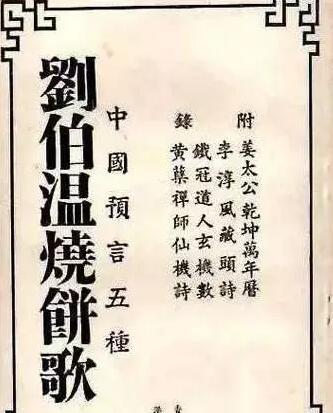 附 姜太公乾坤萬年曆
李淳風藏頭詩
鐵冠道人玄機數
錄 黃蘗禪師仙機詩
中國預言五種
劉伯溫燒餅歌